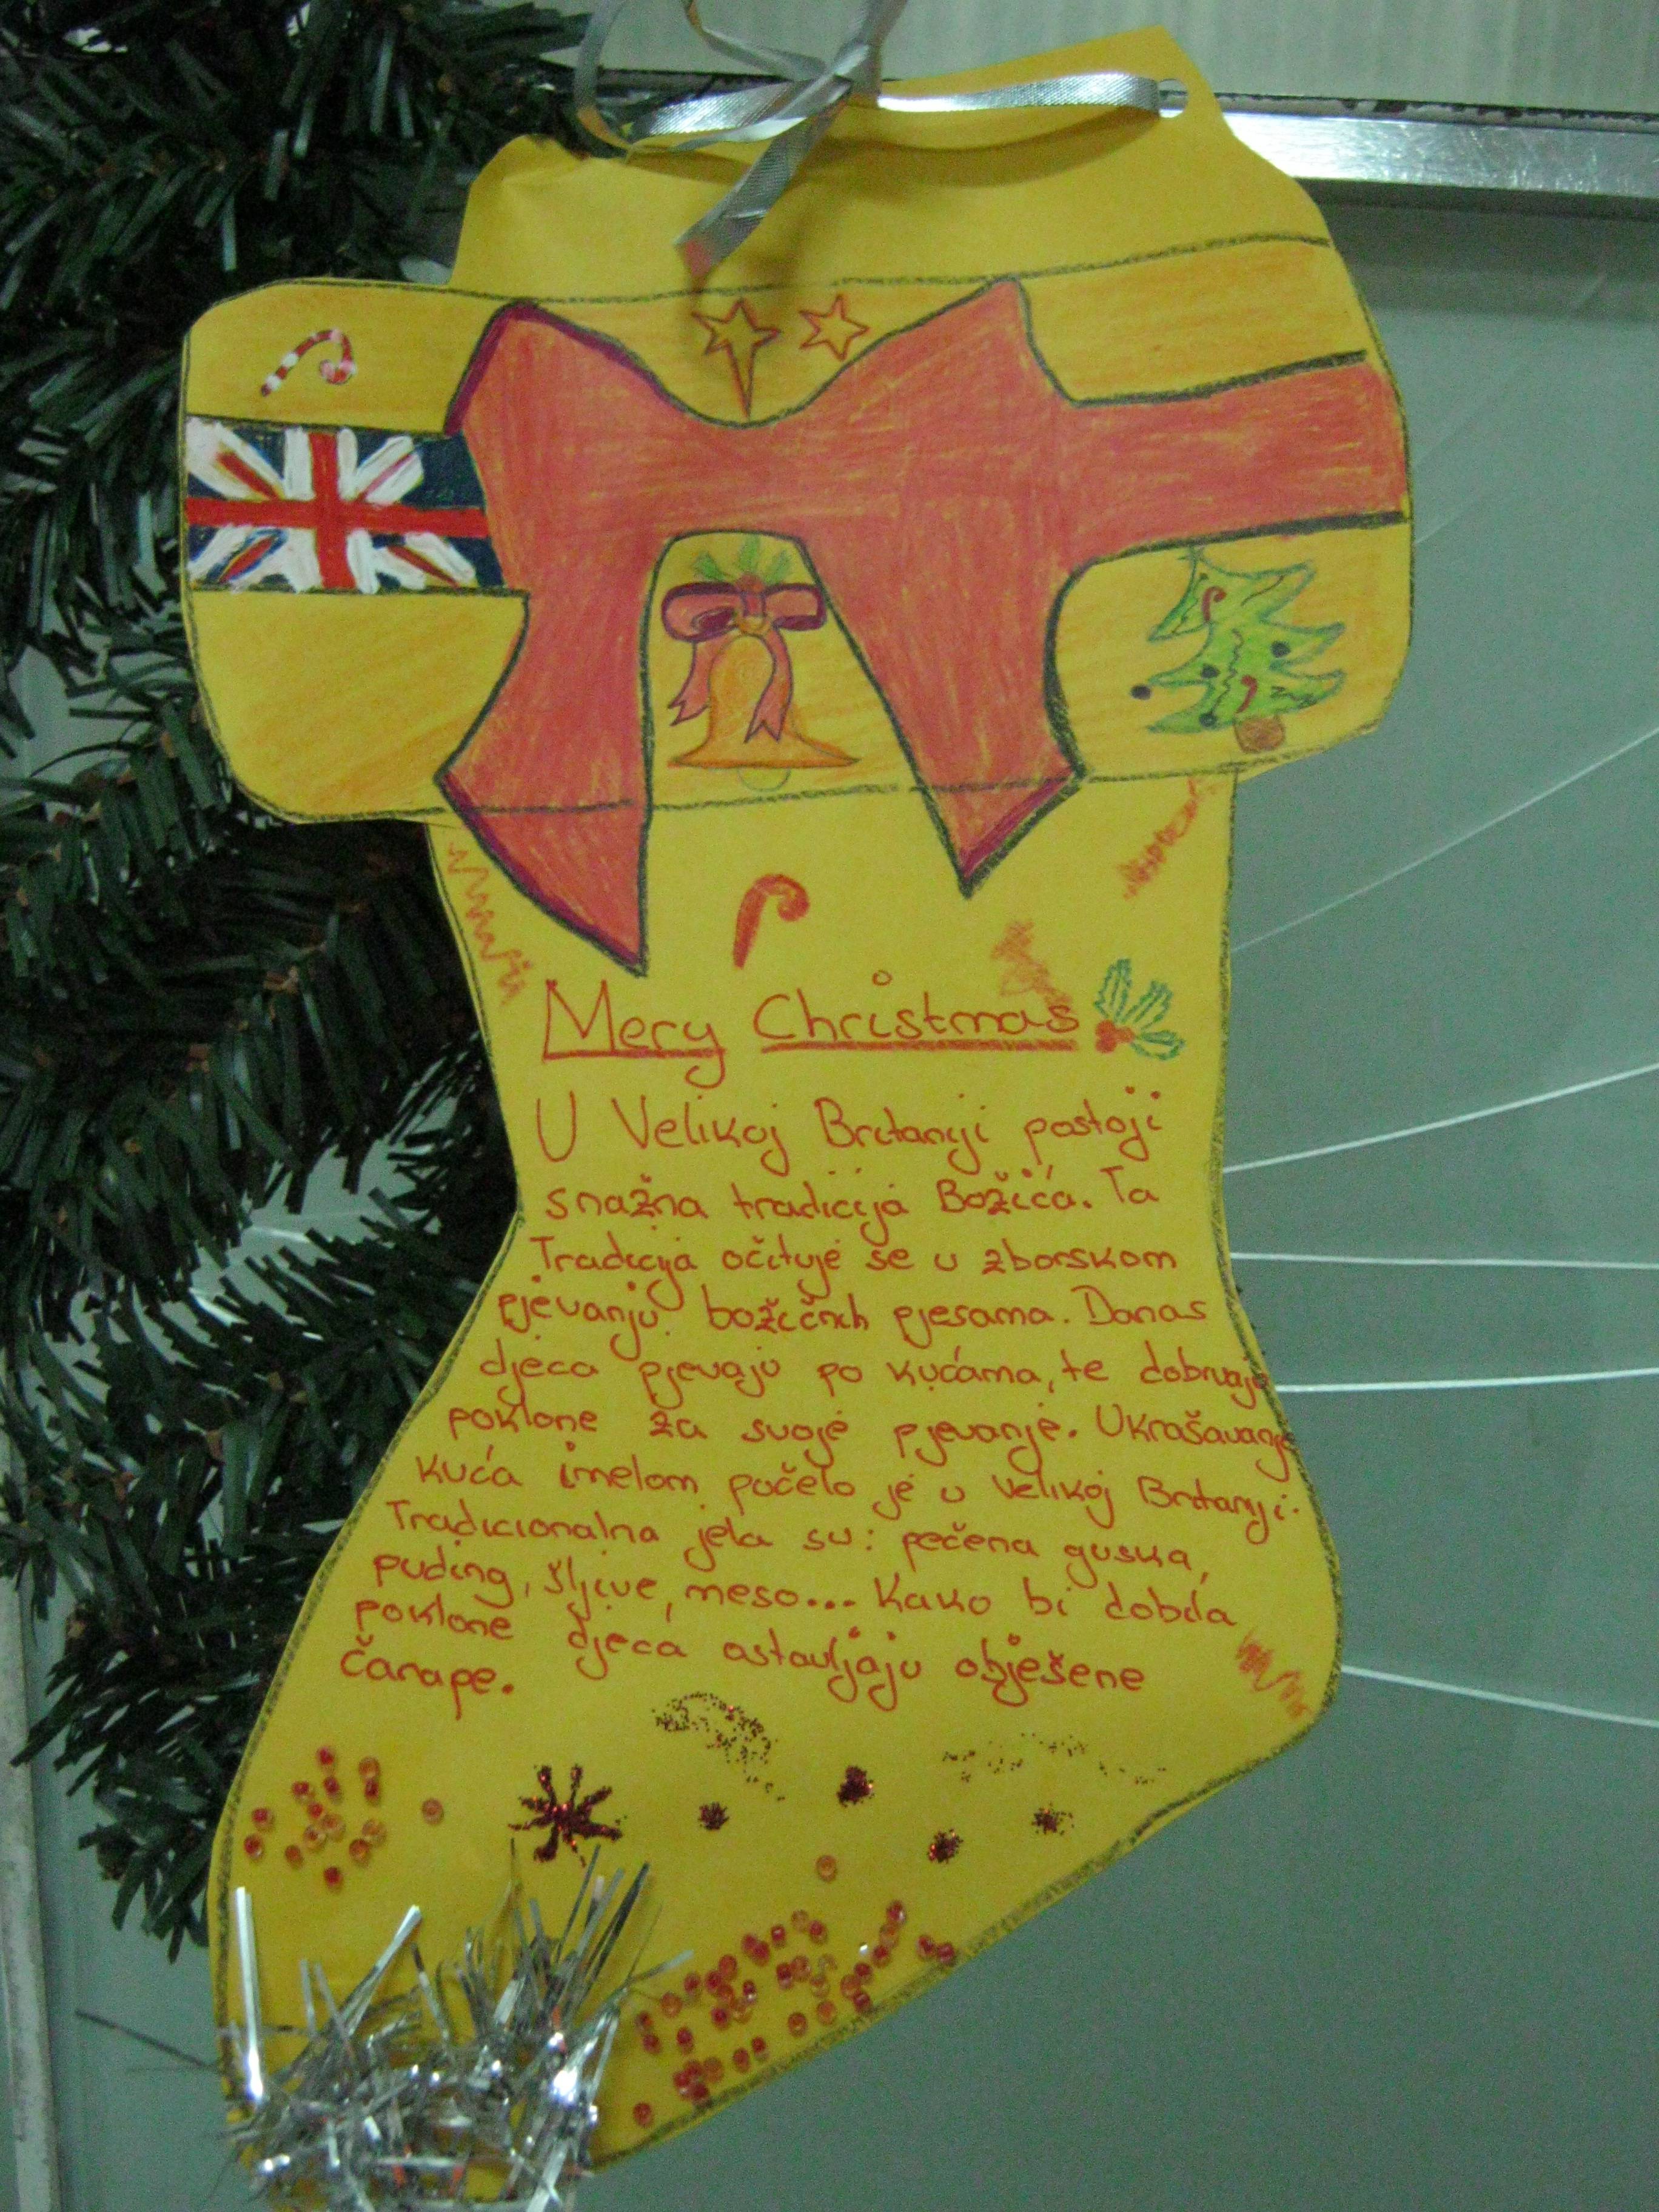 Mery Christmas
U Velikoj Britanji postoji
snažna tradicija Božića. Ta
Tradicija očituje se u zborskom
pjevanju božičnih pjesama. Danas
djeca pjevaju po kućama, te dobivaju
poklone za svoje pjevanje. Ukrašavanje
kuća imelom počelo je u Velikoj Britanji.
Tradicionalna jela su: pečena guska,
puding, šljive, meso... Kako bi dobila
poklone djeca ostavljaju obješene
čarape.